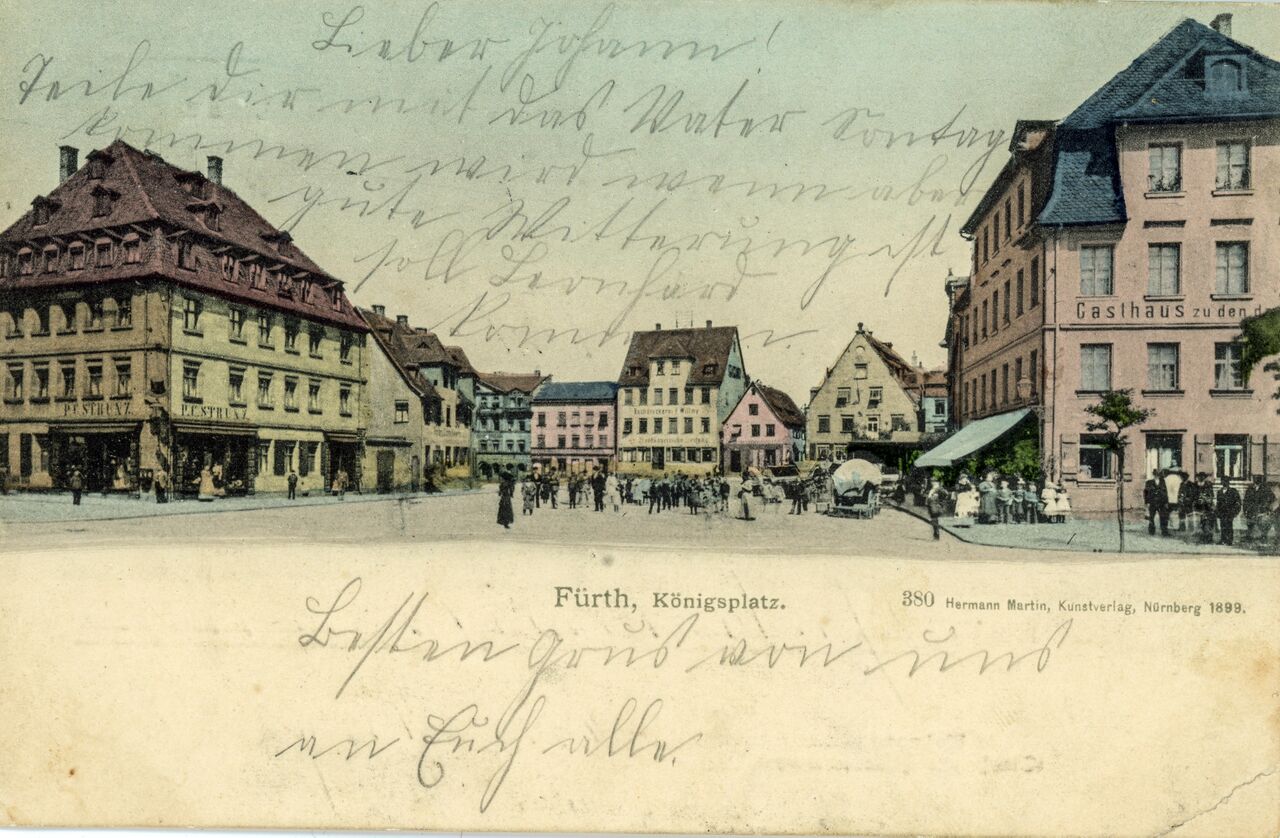 Lieber Johann!
Teile dir mit das Vater Sontag
kommen wird wenn aber
gute Witterung ist
soll Bernhard
kommen.
P. E. STRUNZ.
P. E. STRUNZ.
Gasthaus zu den d
Fürth, Königsplatz.
380 Hermann Martin, Kunstverlag, Nürnberg 1899.
Besten Grus von uns
an Euch alle.